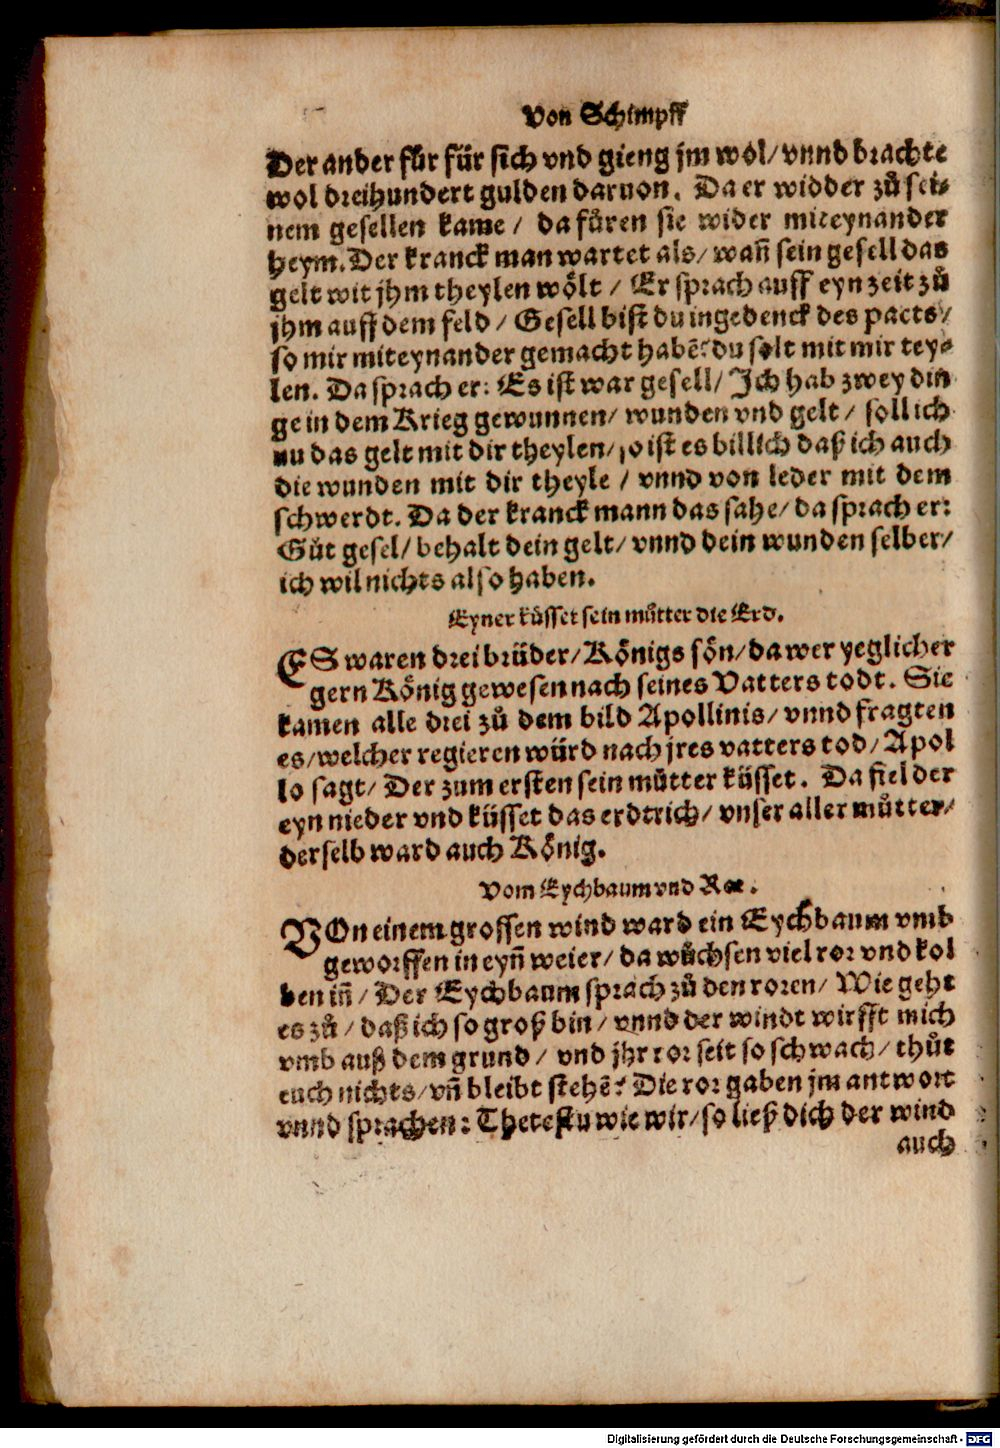 Von Schimpff
Der ander fůr für sich vnd gieng jm wol/ vnnd brachte
wol dreihundert gulden daruon. Da er widder zů sei-
nem gesellen kame / da fůren sie wider miteynander
heym. Der kranck man wartet als/ wañ sein gesell das
gelt wit jhm theylen wölt / Er sprach auff eyn zeit zů
jhm auff dem feld / Gesell bist du ingedenck des pacts/
so mir miteynander gemacht habē? du solt mit mir tey-
len. Da sprach er: Es ist war gesell/ Ich hab zwey din
ge in dem Krieg gewunnen/ wunden vnd gelt / soll ich
nu das gelt mit dir theylen/ so ist es billich daß ich auch
die wunden mit dir theyle / vnnd von leder mit dem
schwerdt. Da der kranck mann das sahe/ da sprach er:
Gůt gesel/ behalt dein gelt/ vnnd dein wunden selber/
ich wil nichts also haben.
Eyner küsset sein můtter die Erd.
ES waren drei brüder/ Königs sön/ da wer yeglicher
gern König gewesen nach seines Vatters todt. Sie
kamen alle drei zů dem bild Apollinis/ vnnd fragten
es/ welcher regieren würd nach jres vatters tod/ Apol
lo sagt/ Der zum ersten sein můtter küsset. Da fiel der
eyn nieder vnd küsset das erdtrich/ vnser aller můtter/
derselb ward auch König.
Vom Eychbaum vnd Ror.
VOn einem grossen wind ward ein Eychbaum vmb
geworffen in eyñ weier/ da wůchsen viel ror vnd kol
ben iñ / Der Eychbaum sprach zů den roren/ Wie geht
es zů / daß ich so groß bin / vnnd der windt wirfft mich
vmb auß dem grund / vnd jhr ror seit so schwach/ thůt
euch nichts/ vñ bleibt stehē? Die ror gaben jm antwort
vnnd sprachen: Thetestu wie wir/ so ließ dich der wind
auch
Digitalisierung gefördert durch die Deutsche Forschungsgemeinschaft - DFG